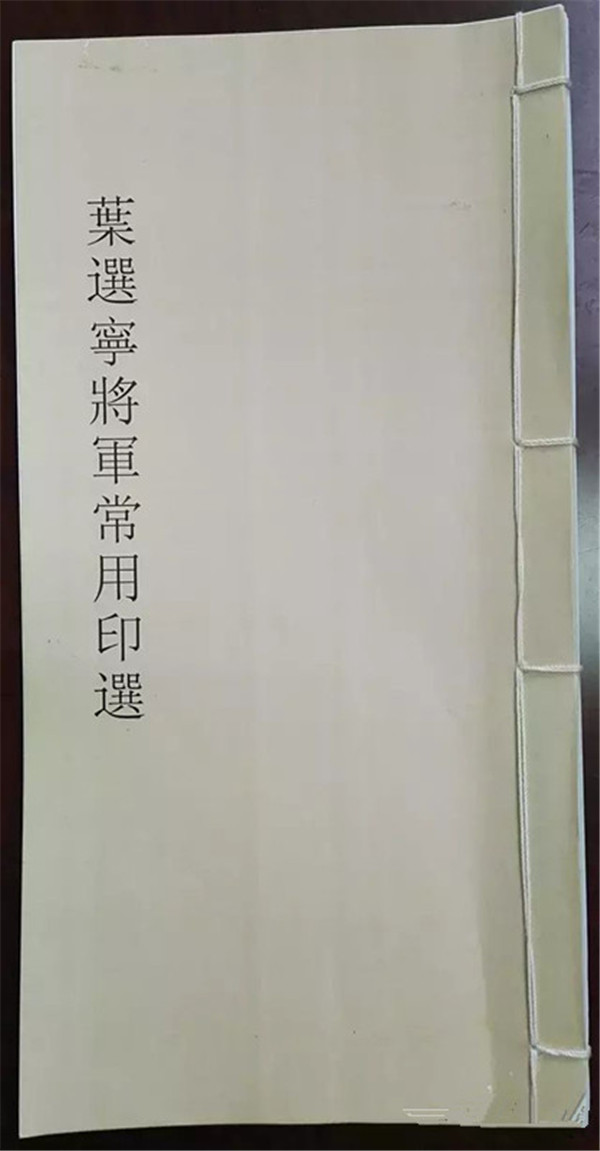 葉選寧將軍常用印選